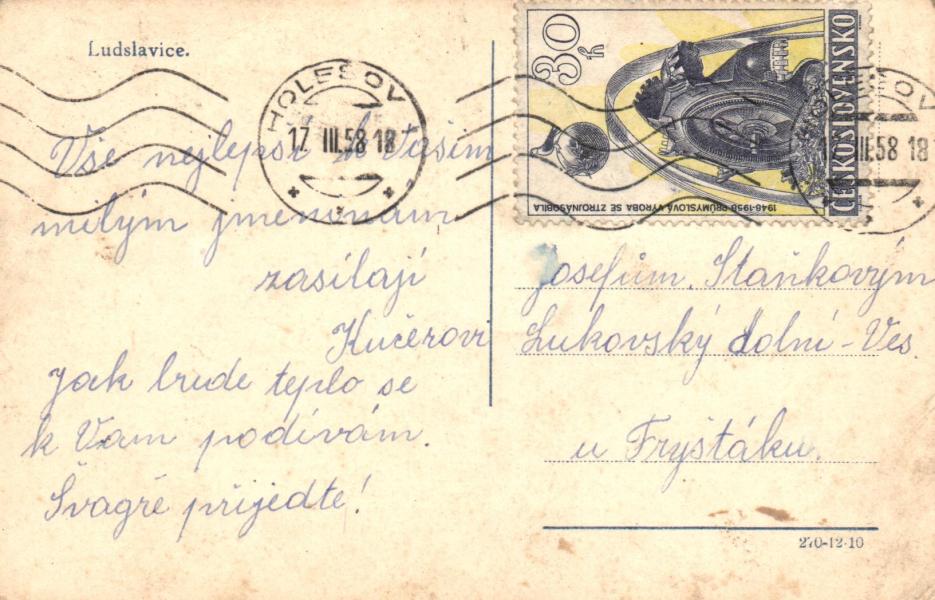 Ludslavice.
HOLEŠOV
17. III.58 18
30 h
ČESKOSLOVENSKO
1948-1958 PRŮMYSLOVÁ VÝROBA SE ZTROJNÁSOBILA
III.58 18
Vše nejlepší k Vašim
milým jmeninám
zasílají
Kučerovi
Jak bude teplo se
k Vám podívám.
Švagře přijedte!
Josefům. Staňkovým
Lukovský dolní-Ves.
u Fryštáku.
270-12-10